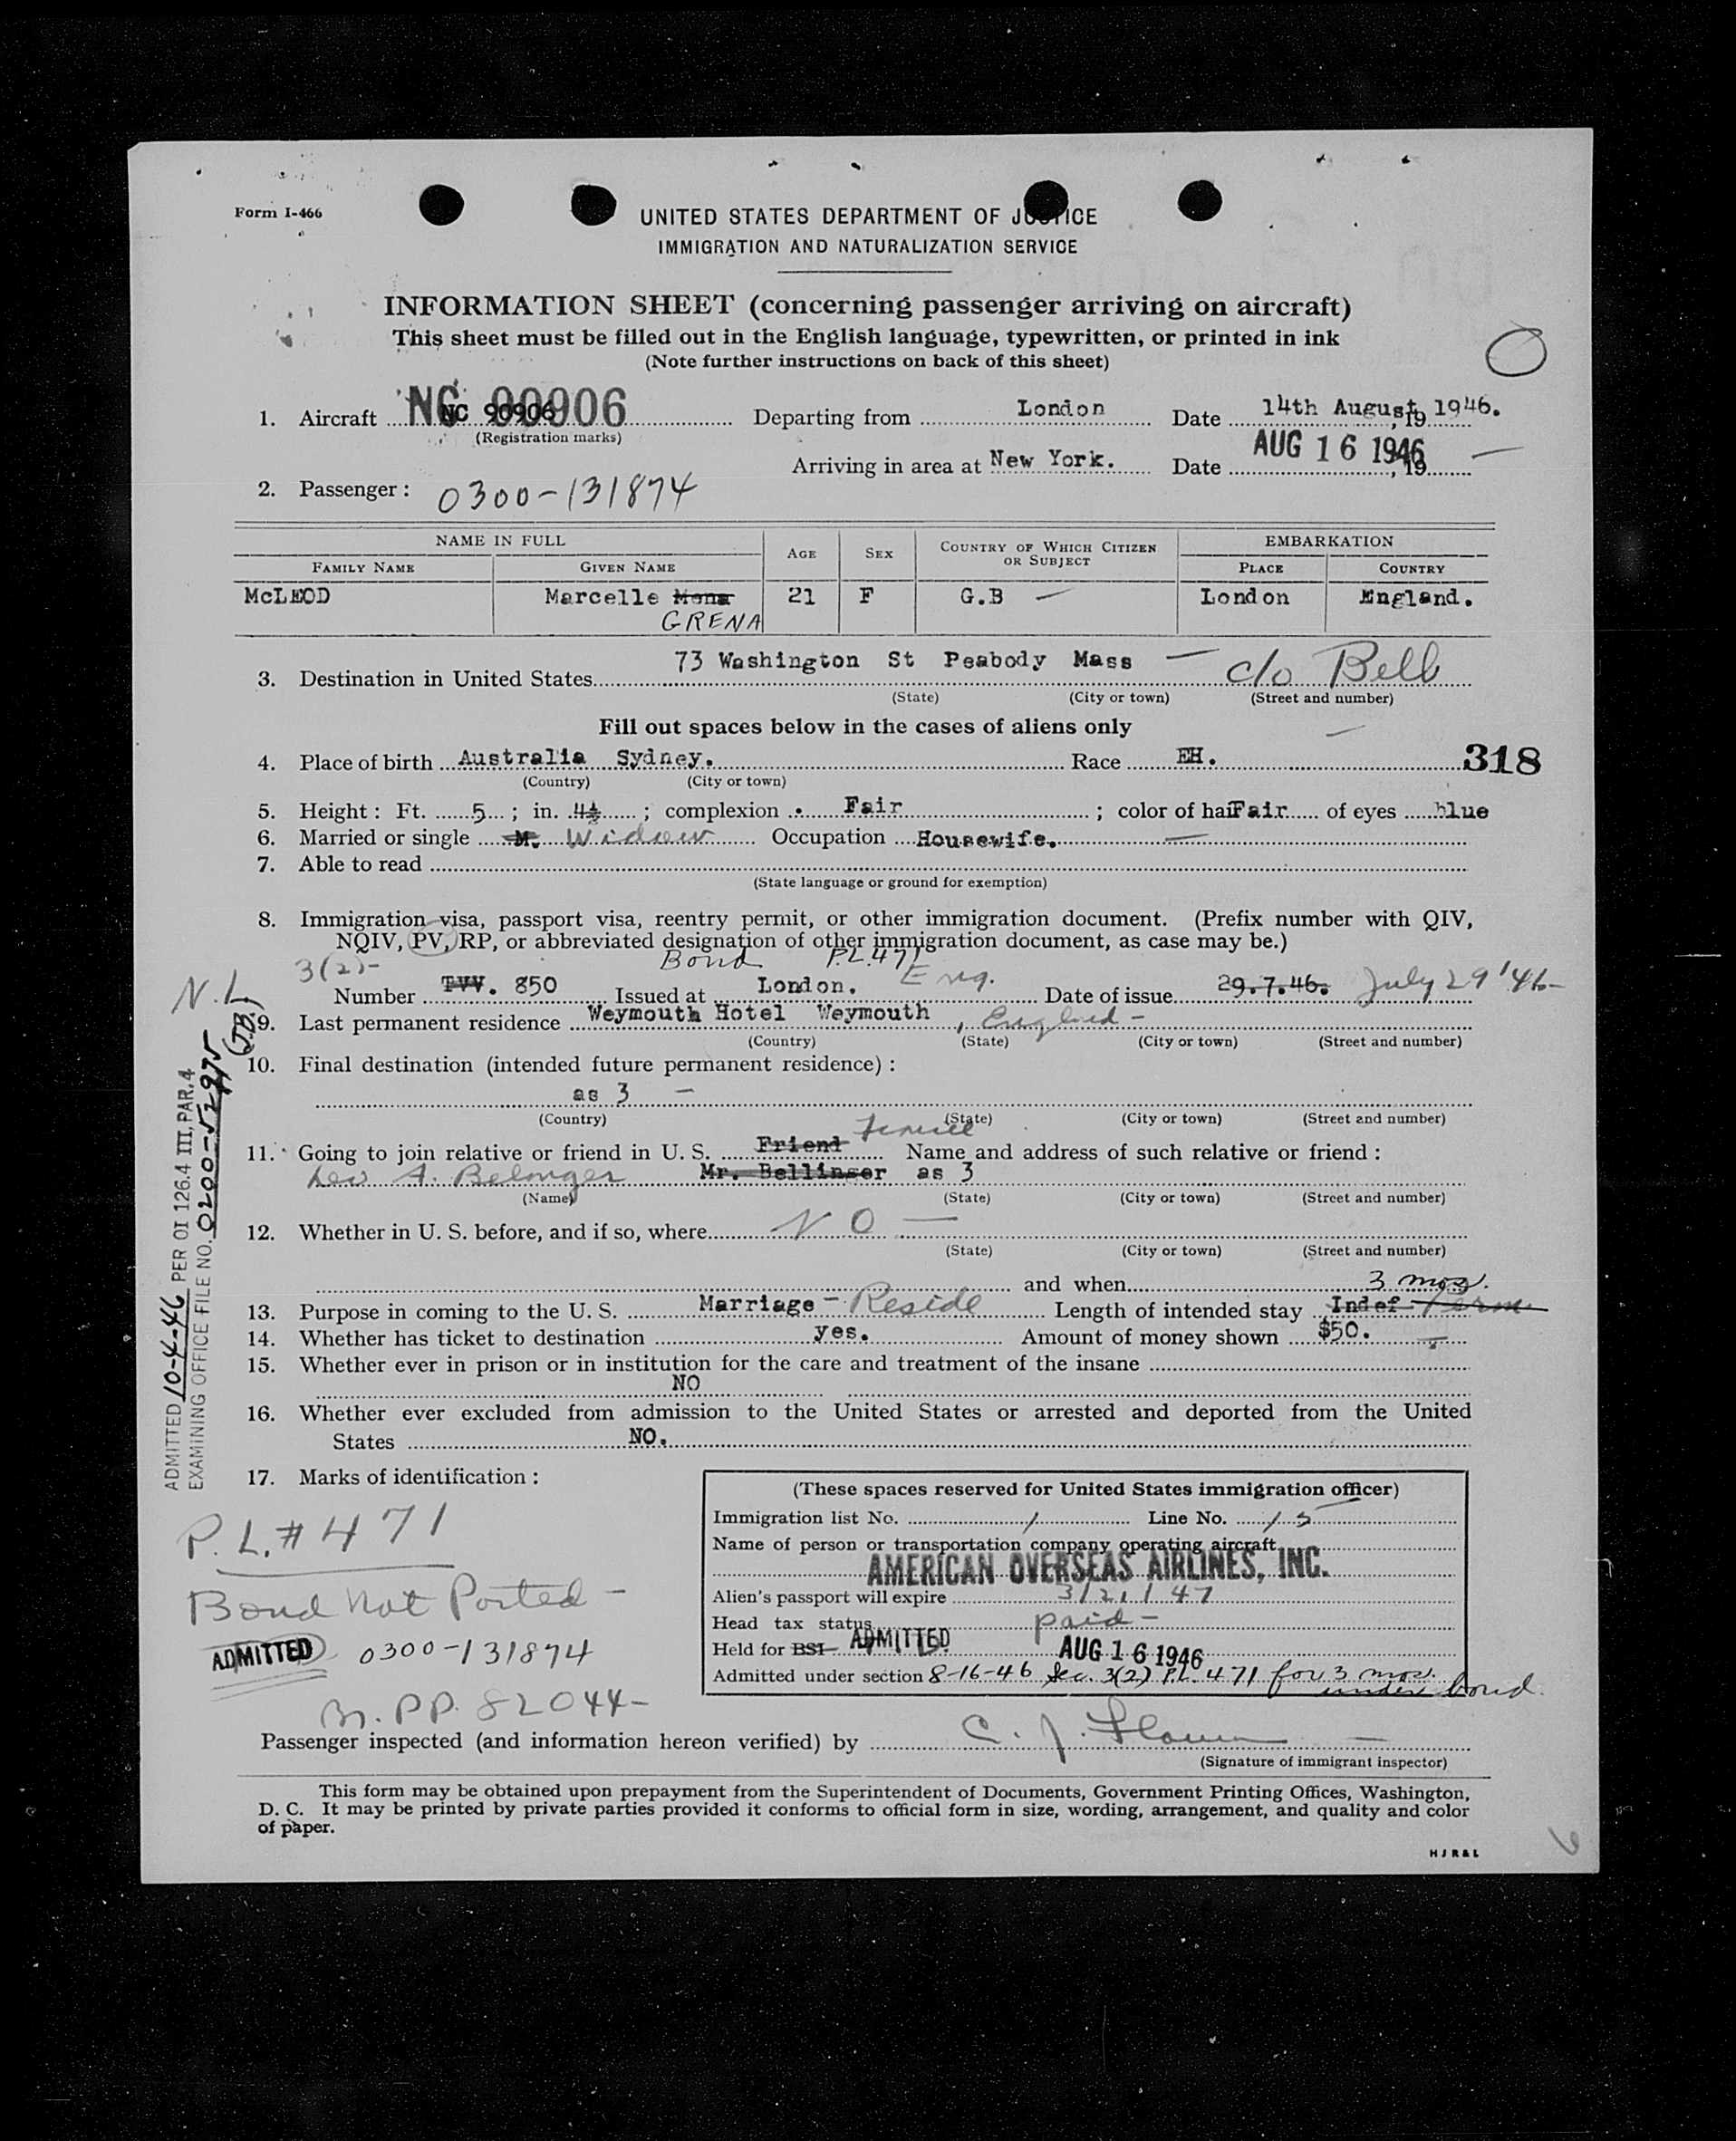 Form I-466
UNITED STATES DEPARTMENT OF JUSTICE
IMMIGRATION AND NATURALIZATION SERVICE
INFORMATION SHEET (concerning passenger arriving on aircraft)
This sheet must be filled out in the English language, typewritten, or printed in ink
(Note further instructions on back of this sheet)
1. Aircraft NC 90906 Departing from London Date 14th August, 1946.
(Registration marks)
Arriving in area at New York. Date AUG 16 1946, 19
2. Passenger: 0300-131874
NAME IN FULL AGE SEX COUNTRY OF WHICH CITIZEN OR SUBJECT EMBARKATION
FAMILY NAME GIVEN NAME PLACE COUNTRY
McLEOD Marcelle Mona 21 F G.B — London England.
GRENA
3. Destination in United States 73 Washington St Peabody Mass — c/o Bell
(State) (City or town) (Street and number)
Fill out spaces below in the cases of aliens only
4. Place of birth Australia Sydney. Race EH. 318
(Country) (City or town)
5. Height: Ft. 5; in. 4½; complexion Fair; color of hair Fair of eyes blue
6. Married or single M. Widow Occupation Housewife.
7. Able to read
(State language or ground for exemption)
8. Immigration visa, passport visa, reentry permit, or other immigration document. (Prefix number with QIV,
NQIV, PV, RP, or abbreviated designation of other immigration document, as case may be.)
3(2)- Bond P.L.471
Number TVV. 850 Issued at London. Eng. Date of issue 29.7.46. July 29 '46-
N.L. (J.B.)
9. Last permanent residence Weymouth Hotel Weymouth, England-
(Country) (State) (City or town) (Street and number)
10. Final destination (intended future permanent residence):
as 3 —
(Country) (State) (City or town) (Street and number)
11. Going to join relative or friend in U. S. Friend Name and address of such relative or friend:
A. Belonger Mr. Bellinger as 3
(Name) (State) (City or town) (Street and number)
12. Whether in U. S. before, and if so, where NO —
(State) (City or town) (Street and number)
and when 3 mos.
13. Purpose in coming to the U. S. Marriage - Reside Length of intended stay Indef Perm.
14. Whether has ticket to destination yes. Amount of money shown $50.
15. Whether ever in prison or in institution for the care and treatment of the insane
NO
16. Whether ever excluded from admission to the United States or arrested and deported from the United
States NO.
17. Marks of identification:
ADMITTED 10-4-46 PER OI 126.4 III, PAR. 4
EXAMINING OFFICE FILE NO. 0200-52975
P.L.#471
Bond Not Posted -
ADMITTED 0300-131874
Br. PP. 82044-
(These spaces reserved for United States immigration officer)
Immigration list No. 1 Line No. 15
Name of person or transportation company operating aircraft
AMERICAN OVERSEAS AIRLINES, INC.
Alien's passport will expire 3/21/47
Head tax status paid -
Held for BSI ADMITTED AUG 16 1946
Admitted under section 8-16-46 Sec. 3(2) P.L. 471 for 3 mos.
under bond.
Passenger inspected (and information hereon verified) by C. J.
(Signature of immigrant inspector)
This form may be obtained upon prepayment from the Superintendent of Documents, Government Printing Offices, Washington,
D. C. It may be printed by private parties provided it conforms to official form in size, wording, arrangement, and quality and color
of paper.
H J R & L